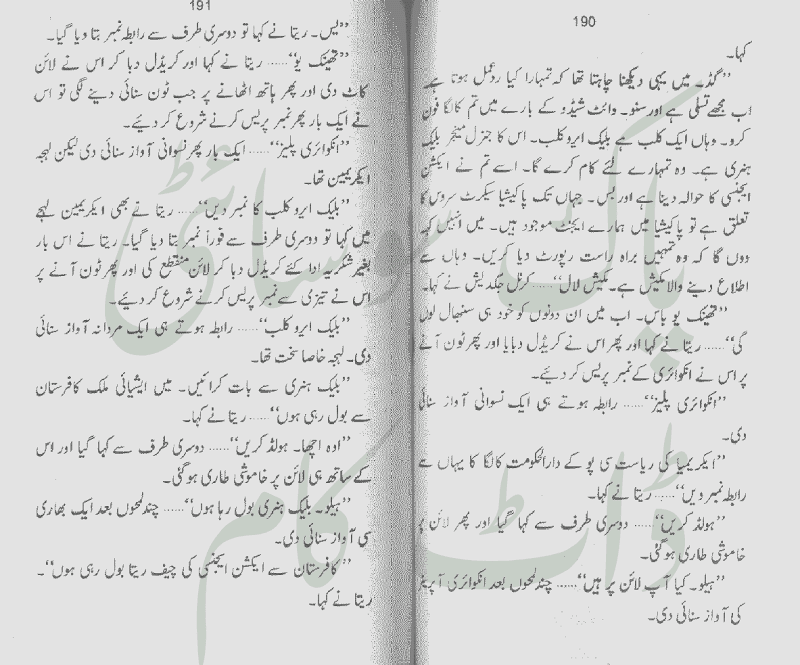 190
کہا۔
’’گڈ۔ میں یہی دیکھنا چاہتا تھا کہ تمہارا کیا ردعمل ہوتا ہے
اب مجھے تسلی ہے اور سنو۔ وائٹ شیڈو کے بارے میں تم کالگا فون
کرو۔ وہاں ایک کلب ہے بلیک ایرو کلب۔ اس کا جنرل مینجر بلیک
ہنری ہے۔ وہ تمہارے لئے کام کرے گا۔ اسے تم نے ایکشن
ایجنسی کا حوالہ دینا ہے اور بس۔ جہاں تک پاکیشیا سیکرٹ سروس کا
تعلق ہے تو پاکیشیا میں ہمارے ایجنٹ موجود ہیں۔ میں انہیں کہہ
دوں گا کہ وہ تمہیں براہ راست رپورٹ دیا کریں۔ وہاں سے
اطلاع دینے والا کیش ہے۔ کیش لال‘‘...... کرنل جگدیش نے کہا۔
’’تھینک یو باس۔ اب میں ان دونوں کو خود ہی سنبھال لوں
گی‘‘...... ریتا نے کہا اور پھر اس نے کریڈل دبایا اور پھر ٹون آنے
پر اس نے انکوائری کے نمبر پریس کر دیئے۔
’’انکوائری پلیز‘‘...... رابطہ ہوتے ہی ایک نسوانی آواز سنائی
دی۔
’’ایکریمیا کی ریاست سی پو کے دارالحکومت کالگا کا یہاں سے
رابطہ نمبر دیں‘‘...... ریتا نے کہا۔
’’ہولڈ کریں‘‘...... دوسری طرف سے کہا گیا اور پھر لائن پر
خاموشی طاری ہوگئی۔
’’ہیلو۔ کیا آپ لائن پر ہیں‘‘...... چند لمحوں بعد انکوائری آپریٹر
کی آواز سنائی دی۔
191
’’یس۔ ریتا نے کہا تو دوسری طرف سے رابطہ نمبر بتا دیا گیا۔
’’تھینک یو‘‘...... ریتا نے کہا اور کریڈل دبا کر اس نے لائن
کاٹ دی اور پھر ہاتھ اٹھانے پر جب ٹون سنائی دینے لگی تو اس
نے ایک بار پھر نمبر پریس کرنے شروع کر دیئے۔
’’انکوائری پلیز‘‘...... ایک بار پھر نسوانی آواز سنائی دی لیکن لہجہ
ایکریمین تھا۔
’’بلیک ایرو کلب کا نمبر دیں‘‘...... ریتا نے بھی ایکریمین لہجے
میں کہا تو دوسری طرف سے فوراً نمبر بتا دیا گیا۔ ریتا نے اس بار
بغیر شکریہ ادا کئے کریڈل دبا کر لائن منقطع کی اور پھر ٹون آنے پر
اس نے تیزی سے نمبر پریس کرنے شروع کر دیئے۔
’’بلیک ایرو کلب‘‘...... رابطہ ہوتے ہی ایک مردانہ آواز سنائی
دی۔ لہجہ خاصا سخت تھا۔
’’بلیک ہنری سے بات کرائیں۔ میں ایشیائی ملک کافرستان
سے بول رہی ہوں‘‘...... ریتا نے کہا۔
’’اوہ اچھا۔ ہولڈ کریں‘‘...... دوسری طرف سے کہا گیا اور اس
کے ساتھ ہی لائن پر خاموشی طاری ہوگئی۔
’’ہیلو۔ بلیک ہنری بول رہا ہوں‘‘...... چند لمحوں بعد ایک بھاری
سی آواز سنائی دی۔
’’کافرستان سے ایکشن ایجنسی کی چیف ریتا بول رہی ہوں‘‘۔
ریتا نے کہا۔
پاک سوسائٹی
ڈاٹ کام